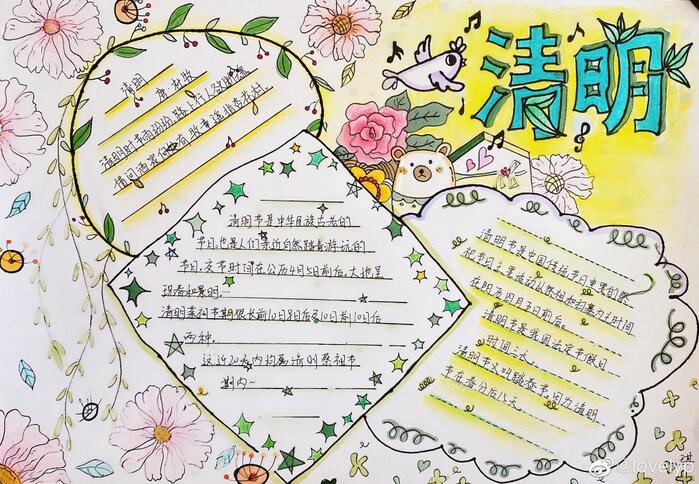 清明
清明
唐 杜牧
清明时节雨纷纷路上行人欲断魂
借问酒家何处有 牧童遥指杏花村
清明节是中华民族古老的
节日,也是人们亲近自然踏青游玩的
节日,次节时间在公历4月5日前后,大地呈
现春和景明,
清明祭祖节期很长前10日8日后至10日前10日后
两种,
这近20天内均属清明祭祖节
期内~
清明节是中国传统节日重要的祭
祀节日主要活动从祭祖和扫墓为主时间
在阳历四月五日前后。
清明节是我国法定节假日
时间三天。
清明节又叫踏春节,因为清明
节在春分后15天。
@lovelyp